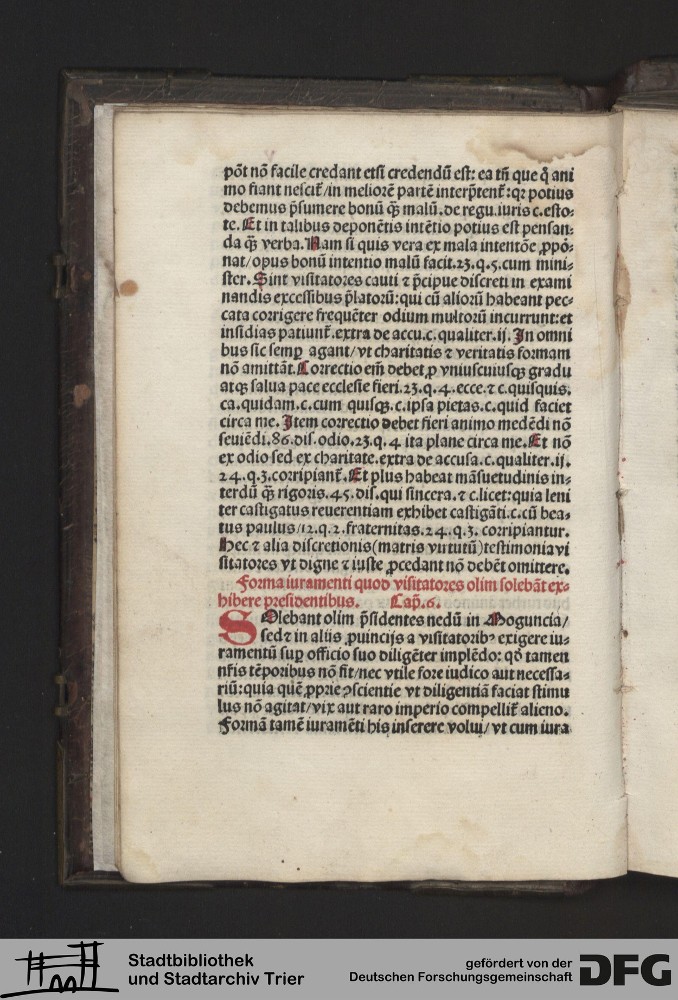 põt nõ facile credant etsi credendũ est: ea tñ que q̃ ani
mo fiant nescit̃/in meliorẽ partẽ interp̃tent̃: qꝛ potius
debemus p̃sumere bonũ q̃ꝫ malũ.de regu.iuris c.esto⸗
te. Et in talibus deponẽtis intẽtio potius est pensan⸗
da q̃ꝫ verba. Nam si quis vera ex mala intentõe ꝓpõ⸗
nat/opus bonũ intentio malũ facit.23.q.5.cum mini⸗
ster. Sint visitatores cauti ⁊ p̃cipue discreti in exami
nandis excessibus p̃latorũ: qui cũ aliorũ habeant pec⸗
cata corrigere frequẽter odium multorũ incurrunt: et
insidias patiunt̃.extra de accu.c.qualiter.ij. In omni
bus sic semꝑ agant/vt charitatis ⁊ veritatis formam
nõ amittãt. Correctio em̃ debet ꝓ vniuscuiusqꝫ gradu
atqꝫ salua pace ecclesie fieri.23.q.4.ecce.⁊ c.quisquis.
ca.quidam.c.cum quisqꝫ.c.ipsa pietas.c.quid faciet
circa me. Item correctio debet fieri animo medẽdi nõ
seuiẽdi.86.dis.odio.23.q.4 ita plane circa me. Et nõ
ex odio sed ex charitate.extra de accusa.c.qualiter.ij.
24.q.3.corripiant̃. Et plus habeat mãsuetudinis in⸗
terdũ q̃ꝫ rigoris.45.dis.qui sincera.⁊ c.licet: quia leni
ter castigatus reuerentiam exhibet castigãti.c.cũ bea⸗
tus paulus/12.q.2.fraternitas.24.q.3. corripiantur.
Hec ⁊ alia discretionis(matris virtutũ)testimonia vi
sitatores vt digne ⁊ iuste ꝓcedant nõ debẽt omittere.
Forma iuramenti quod visitatores olim solebãt ex⸗
hibere presidentibus. Cap̃.6.
SOlebant olim p̃sidentes nedũ in Moguncia/
sed ⁊ in aliis ꝓuincijs a visitatoribꝫ exigere iu⸗
ramentũ suꝑ officio suo diligẽter implẽdo: qđ tamen
nr̃is tẽporibus nõ fit/nec vtile fore iudico aut necessa⸗
riũ: quia quẽ ꝓprie ꝯscientie vt diligentiã faciat stimu
lus nõ agitat/vix aut raro imperio compellit̃ alieno.
Formã tamẽ iuramẽti his inserere volui/vt cum iura
Stadtbibliothek
und Stadtarchiv Trier
gefördert von der
Deutschen Forschungsgemeinschaft
DFG